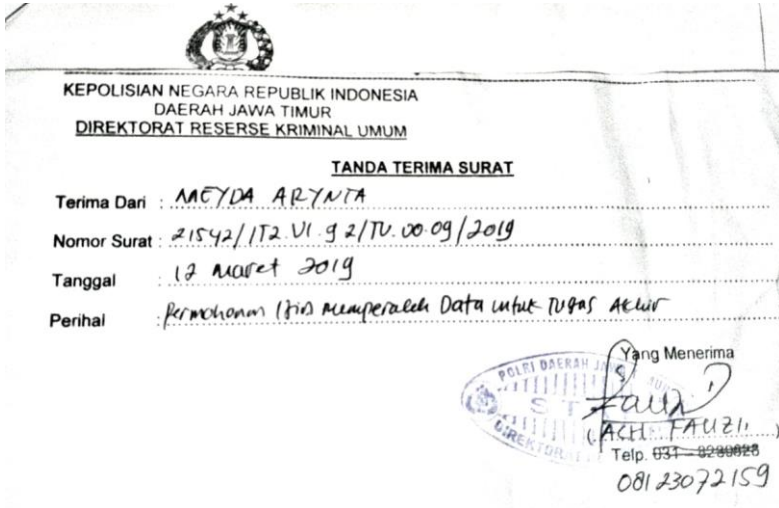 KEPOLISIAN NEGARA REPUBLIK INDONESIA
DAERAH JAWA TIMUR
DIREKTORAT RESERSE KRIMINAL UMUM
TANDA TERIMA SURAT
Terima Dari : MEYDA ARYNTA
Nomor Surat : 21542/IT2.VI.9 2/TU.00.09/2019
Tanggal : 12 maret 2019
Perihal : Permohonan Izin Memperoleh Data untuk Tugas Akhir
Yang Menerima
POLRI DAERAH JAWA
DIREKTORAT
(ACH. FAUZI.)
Telp. 031 - 8280828
08123072159